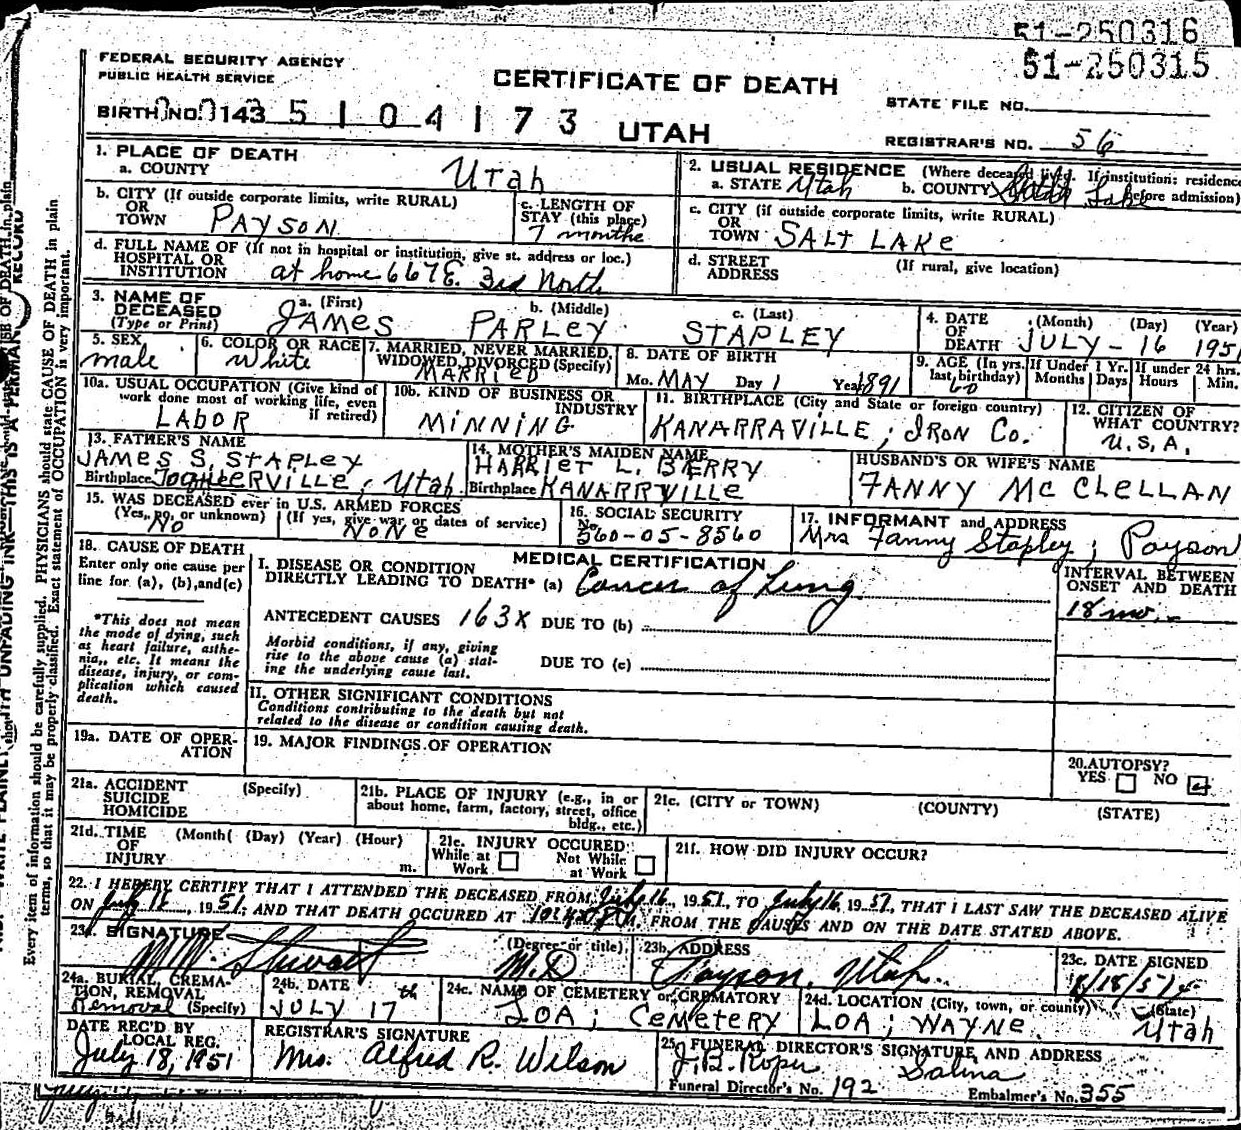 51-250316
51-250315
FEDERAL SECURITY AGENCY
PUBLIC HEALTH SERVICE
CERTIFICATE OF DEATH
STATE FILE NO.
BIRTH NO. 143 5 1 0 4 1 7 3 UTAH
REGISTRAR'S NO. 56
1. PLACE OF DEATH
a. COUNTY Utah
2. USUAL RESIDENCE (Where deceased lived. If institution: residence before admission)
a. STATE Utah b. COUNTY Salt Lake
b. CITY (If outside corporate limits, write RURAL)
OR
TOWN PAYSON
c. LENGTH OF
STAY (this place)
7 months
c. CITY (if outside corporate limits, write RURAL)
OR
TOWN SALT LAKE
d. FULL NAME OF (If not in hospital or institution, give st. address or loc.)
HOSPITAL OR
INSTITUTION at home 667 E. 3rd North
d. STREET
ADDRESS
(If rural, give location)
3. NAME OF
DECEASED
(Type or Print)
a. (First) b. (Middle) c. (Last)
JAMES PARLEY STAPLEY
4. DATE
OF
DEATH
(Month) (Day) (Year)
JULY - 16 1951
5. SEX
male
6. COLOR OR RACE
White
7. MARRIED, NEVER MARRIED,
WIDOWED DIVORCED (Specify)
MARRIED
8. DATE OF BIRTH
Mo. MAY Day 1 Year 1891
9. AGE (In yrs.
last birthday)
60
If Under 1 Yr.
Months Days
If under 24 hrs.
Hours Min.
10a. USUAL OCCUPATION (Give kind of
work done most of working life, even
if retired)
LABOR
10b. KIND OF BUSINESS OR
INDUSTRY
MINNING
11. BIRTHPLACE (City and State or foreign country)
KANARRAVILLE, IRON Co.
12. CITIZEN OF
WHAT COUNTRY?
U.S.A.
13. FATHER'S NAME
JAMES S. STAPLEY
Birthplace TOQUERVILLE, Utah
14. MOTHER'S MAIDEN NAME
HARRIET L. BERRY
Birthplace KANARRVILLE
HUSBAND'S OR WIFE'S NAME
FANNY MC CLELLAN
15. WAS DECEASED ever in U.S. ARMED FORCES
(Yes, no, or unknown) (If yes, give war or dates of service)
No NONE
16. SOCIAL SECURITY
No.
560-05-8560
17. INFORMANT and ADDRESS
Mrs Fanny Stapley; Payson
18. CAUSE OF DEATH
Enter only one cause per
line for (a), (b), and (c)
*This does not mean
the mode of dying, such
as heart failure, asthe-
nia, etc. It means the
disease, injury, or com-
plication which caused
death.
MEDICAL CERTIFICATION
I. DISEASE OR CONDITION
DIRECTLY LEADING TO DEATH* (a) Cancer of Lung
INTERVAL BETWEEN
ONSET AND DEATH
18 mo.
ANTECEDENT CAUSES 163X DUE TO (b)
Morbid conditions, if any, giving
rise to the above cause (a) stat-
ing the underlying cause last.
DUE TO (c)
II. OTHER SIGNIFICANT CONDITIONS
Conditions contributing to the death but not
related to the disease or condition causing death.
19a. DATE OF OPER-
ATION
19. MAJOR FINDINGS OF OPERATION
20. AUTOPSY?
YES NO
21a. ACCIDENT (Specify)
SUICIDE
HOMICIDE
21b. PLACE OF INJURY (e.g., in or
about home, farm, factory, street, office
bldg., etc.)
21c. (CITY or TOWN) (COUNTY) (STATE)
21d. TIME (Month) (Day) (Year) (Hour)
OF
INJURY m.
21e. INJURY OCCURED
While at Work Not While at Work
21f. HOW DID INJURY OCCUR?
22. I HEREBY CERTIFY THAT I ATTENDED THE DECEASED FROM July 16, 1951, TO July 16, 1951, THAT I LAST SAW THE DECEASED ALIVE
ON July 12, 1951; AND THAT DEATH OCCURED AT FROM THE CAUSES AND ON THE DATE STATED ABOVE.
23a. SIGNATURE (Degree or title)
Stewart M.D
23b. ADDRESS
Payson, Utah
23c. DATE SIGNED
24a. BURIAL, CREMA-
TION, REMOVAL
(Specify)
Removal
24b. DATE
JULY 17th
24c. NAME OF CEMETERY or CREMATORY
LOA; CEMETERY
24d. LOCATION (City, town, or county) (State)
LOA; WAYNE. Utah
DATE REC'D BY
LOCAL REG.
July 18, 1951
REGISTRAR'S SIGNATURE
Mrs. Alfred R. Wilson
25. FUNERAL DIRECTOR'S SIGNATURE, AND ADDRESS
Salina
Funeral Director's No. 192 Embalmer's No. 355
Every item of information should be carefully supplied. PHYSICIANS should state CAUSE OF DEATH in plain
terms, so that it may be properly classified. Exact statement of OCCUPATION is very important.